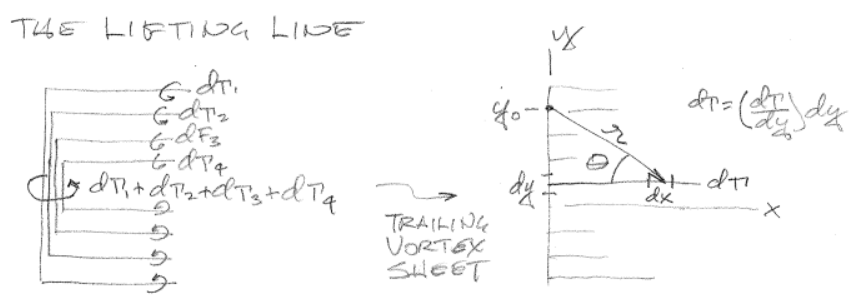 THE LIFTING LINE
dΓ₁
dΓ₂
dΓ₃
dΓ₄
dΓ₁+dΓ₂+dΓ₃+dΓ₄
TRAILING
VORTEX
SHEET
y
y₀
r
θ
dy
dx
dΓ
x
dΓ=(dΓ/dy)dy